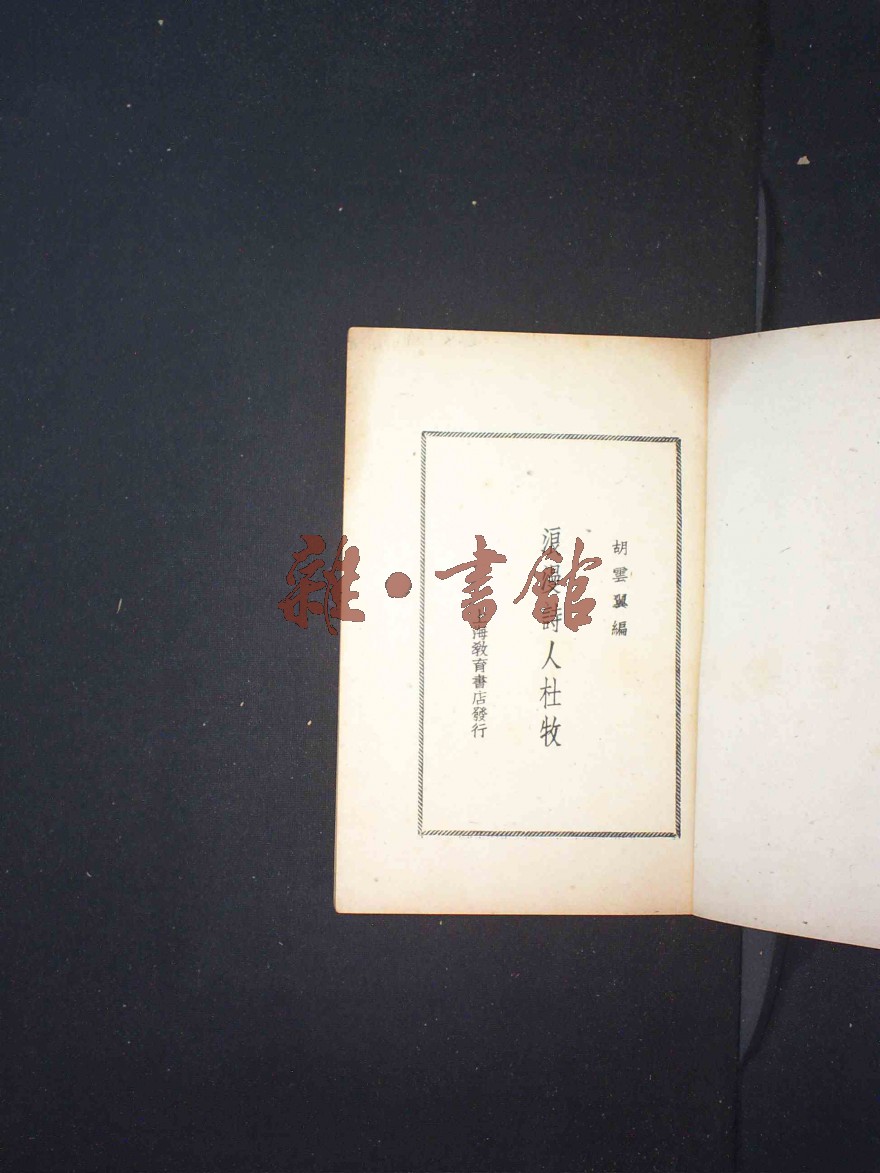 胡雲翼編
浪漫詩人杜牧
上海教育書店發行
雜·書館